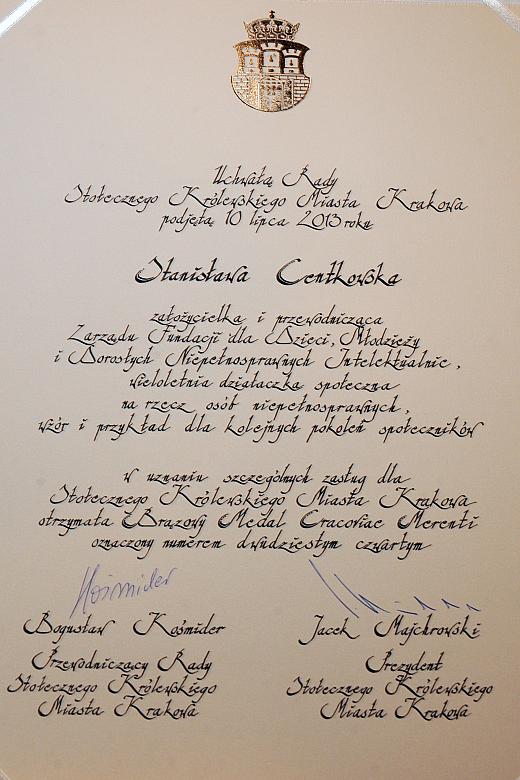 Uchwałą Rady
Stołecznego Królewskiego Miasta Krakowa
podjętą 10 lipca 2013 roku
Stanisława Centkowska
założycielka i przewodnicząca
Zarządu Fundacji dla Dzieci, Młodzieży
i Dorosłych Niepełnosprawnych Intelektualnie,
wieloletnia działaczka społeczna
na rzecz osób niepełnosprawnych,
wzór i przykład dla kolejnych pokoleń społeczników
w uznaniu szczególnych zasług dla
Stołecznego Królewskiego Miasta Krakowa
otrzymała Brązowy Medal Cracoviae Merenti
oznaczony numerem dwudziestym czwartym
Kośmider
Bogusław Kośmider Jacek Majchrowski
Przewodniczący Rady Prezydent
Stołecznego Królewskiego Stołecznego Królewskiego
Miasta Krakowa Miasta Krakowa